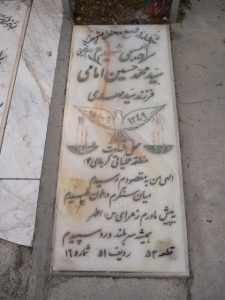 شهید
سید محمد حسین امامی
فرزند سید مهدی
۱۳۴۹
محل شهادت
منطقه عملیاتی کربلای ۴
الهی من به مقصودم رسیدم
میان سنگرم در خون تپیدم
به پیش مادرم زهرای اطهر
همیشه سربلند و رو سپیدم
قطعه ۵۳ ردیف ۵۱ شماره ۱۶